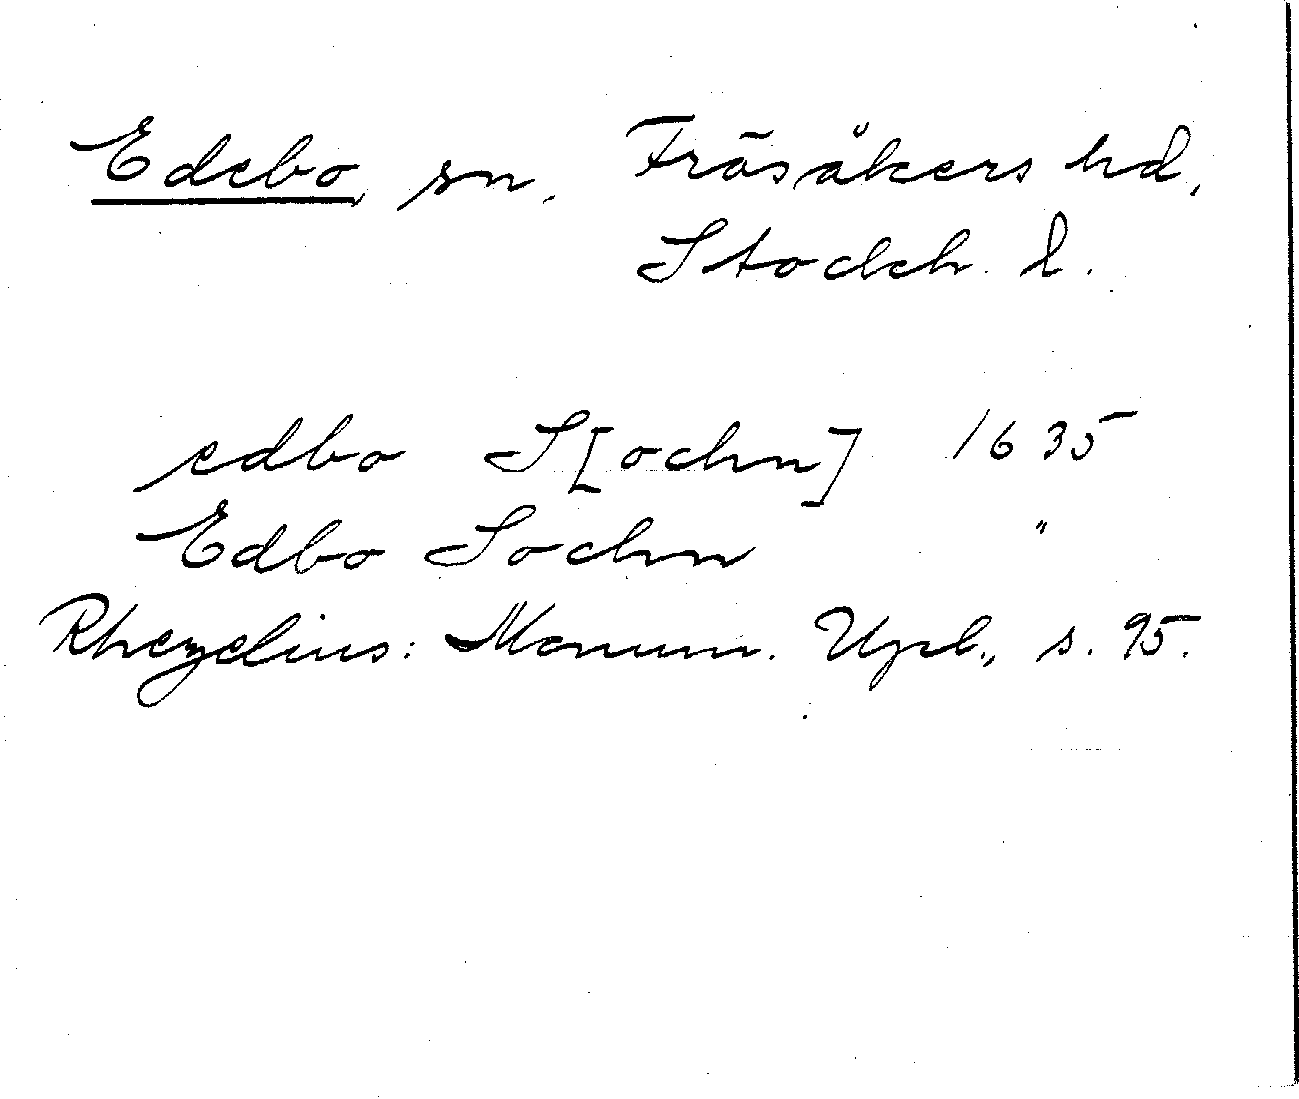 Edebo, sn. Frösåkers hd,
Stockh. l.
edbo S[ochn] 1635
Edbo Sochn "
Rhezelius: Monum. Upl., s. 95.